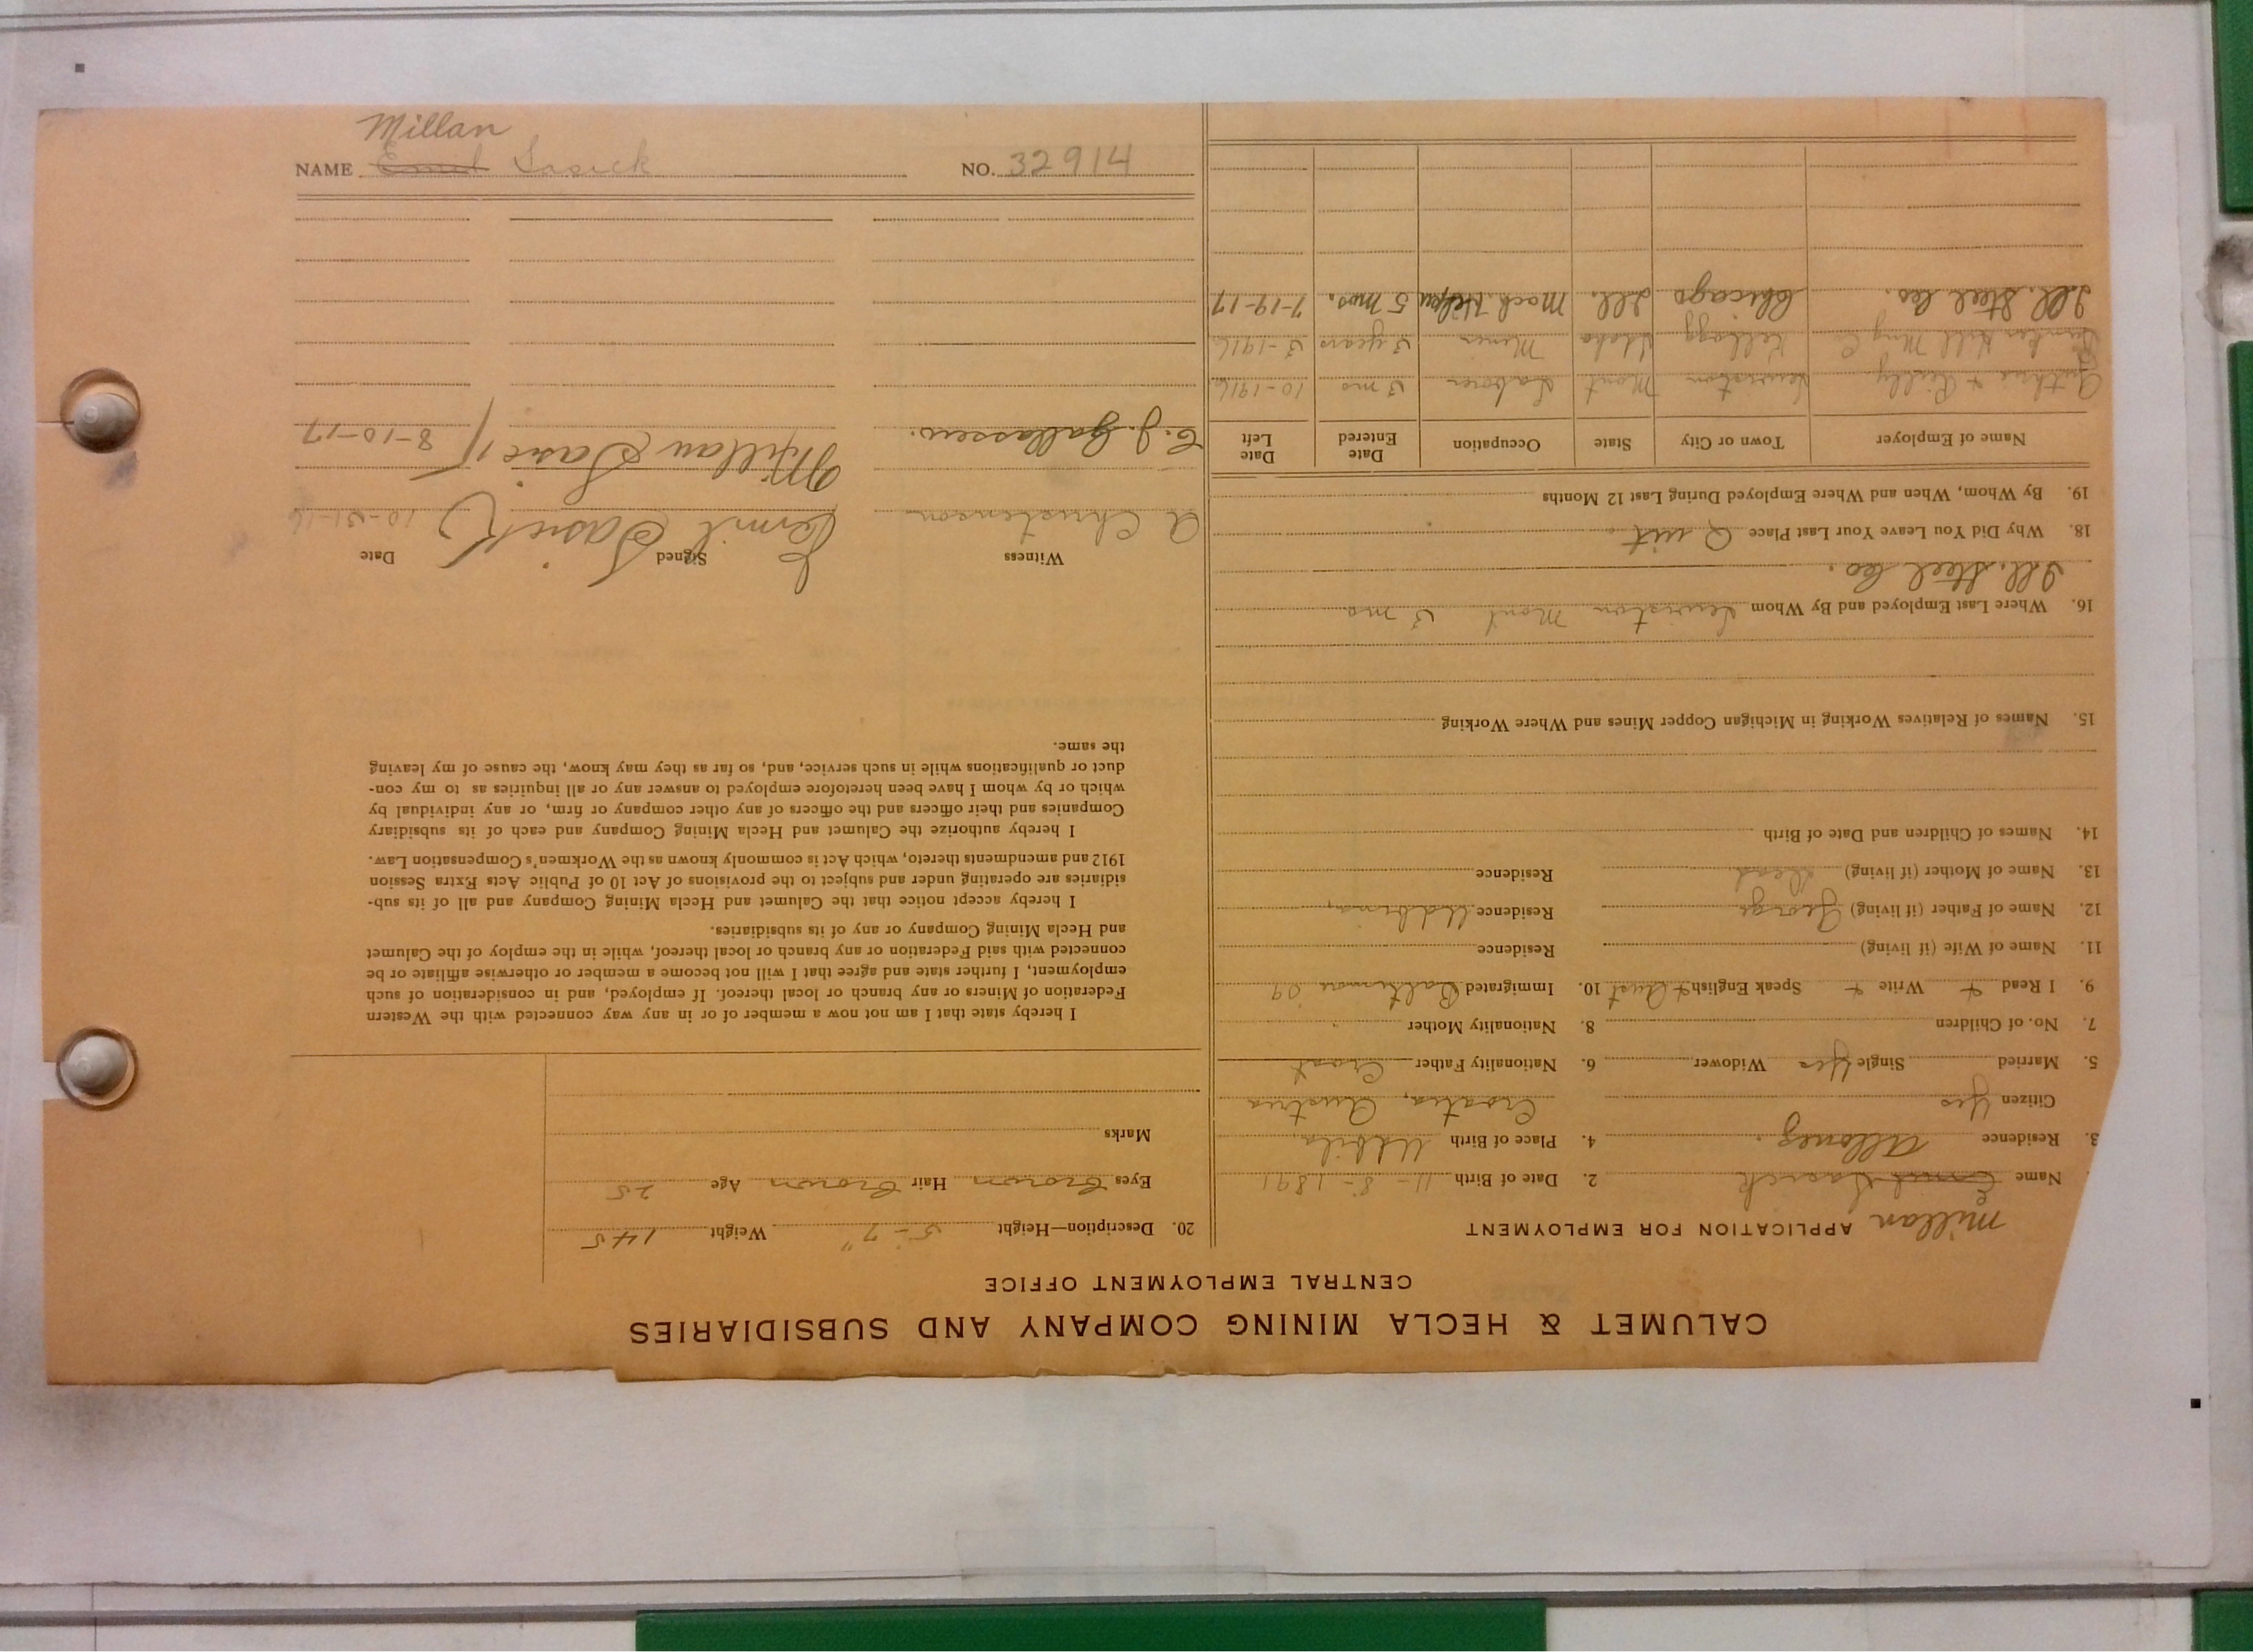 CALUMET & HECLA MINING COMPANY AND SUBSIDIARIES
CENTRAL EMPLOYMENT OFFICE
APPLICATION FOR EMPLOYMENT
Millan
Name Emil Sasick 2. Date of Birth 11-8-1891
3. Residence Allouez. 4. Place of Birth
Citizen Yes Croatia, Austria
5. Married Single Yes Widower 6. Nationality Father Croat
7. No. of Children 8. Nationality Mother
9. I Read + Write + Speak English + Aust 10. Immigrated Baltimore '09
11. Name of Wife (if living) Residence
12. Name of Father (if living) George Residence Udbina,
13. Name of Mother (if living) Dead Residence
14. Names of Children and Date of Birth
15. Names of Relatives Working in Michigan Copper Mines and Where Working
16. Where Last Employed and By Whom Lewiston Mont 3 mo
Ill. Steel Co.
18. Why Did You Leave Your Last Place Quit.
19. By Whom, When and Where Employed During Last 12 Months
Name of Employer Town or City State Occupation Date Entered Date Left
Guthrie & Reilly Lewiston Mont Laborer 3 mo 10-1916
Bunker Hill Mng Co Kellogg Idaho Miner 3 years 3-1916
Ill. Steel Co. Chicago Ill. Mach. Helper 5 mos. 7-19-17
20. Description—Height 5-7" Weight 145
Eyes Brown Hair Brown Age 25
Marks
I hereby state that I am not now a member of or in any way connected with the Western
Federation of Miners or any branch or local thereof. If employed, and in consideration of such
employment, I further state and agree that I will not become a member or otherwise affiliate or be
connected with said Federation or any branch or local thereof, while in the employ of the Calumet
and Hecla Mining Company or any of its subsidiaries.
I hereby accept notice that the Calumet and Hecla Mining Company and all of its sub-
sidiaries are operating under and subject to the provisions of Act 10 of Public Acts Extra Session
1912 and amendments thereto, which Act is commonly known as the Workmen's Compensation Law.
I hereby authorize the Calumet and Hecla Mining Company and each of its subsidiary
Companies and their officers and the officers of any other company or firm, or any individual by
which or by whom I have been heretofore employed to answer any or all inquiries as to my con-
duct or qualifications while in such service, and, so far as they may know, the cause of my leaving
the same.
Witness Signed Date
A Christenson Eemil Sasick 10-31-16
C. J. Gallassero. Millan Sasick 8-10-17
Millan
NAME Emil Sasick NO. 32914